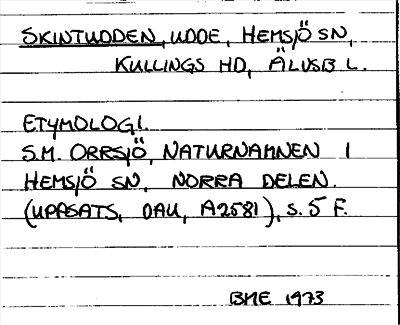 SKINTUDDEN, UDDE, HEMSJÖ SN,
KULLINGS HD, ÄLVSB L.
ETYMOLOGI.
S.M. ORRSJÖ, NATURNAMNEN I
HEMSJÖ SN, NORRA DELEN.
(UPPSATS, DAU, A2581), S. 5 F.
BME 1973